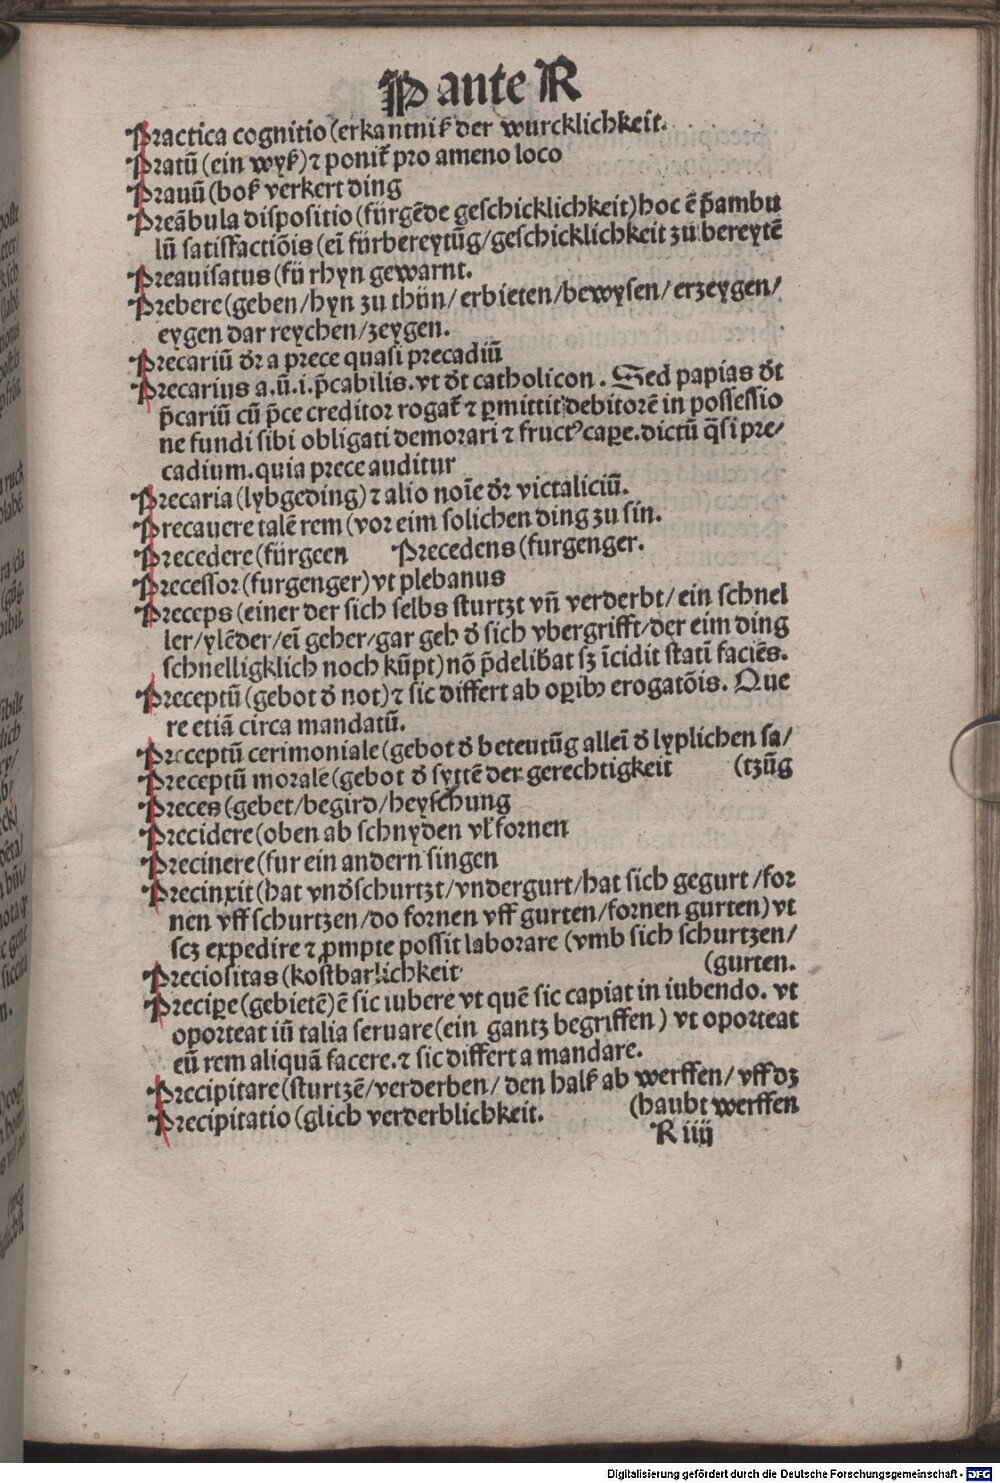 P ante R
Practica cognitio (erkantniß der wurcklichkeit.
Pratū (ein wyß) ⁊ ponit̄ pro ameno loco
Prauū (boß verkert ding
Preābula dispositio (fürgēde geschicklichkeit) hoc ē p̄ambu
lū satisfactiōis (eī fürbereytūg/geschicklichkeit zů bereytē
Preauisatus (fü rhyn gewarnt.
Prebere (geben/hyn zu thün/ erbieten/bewysen/ erzeygen/
eygen dar reychen/zeygen.
Precariū dr̄ a prece quasi precadiū
Precarius a.ū.i.p̄cabilis.vt dt̄ catholicon. Sed papias dt̄
p̄cariū cū p̄ce creditor rogat̄ ⁊ ꝑmittit debitorē in possessio
ne fundi sibi obligati demorari ⁊ fructꝰ caꝑe.dictū q̄si pre/
cadium.quia prece auditur
Precaria (lybgeding) ⁊ alio noīe dr̄ victaliciū.
Precauere talē rem (vor eim solichen ding zu sin.
Precedere (fürgeen Precedens (furgenger.
Precessor (furgenger) vt plebanus
Preceps (einer der sich selbs sturtzt vn̄ verderbt/ ein schnel
ler/ylēder/eī geher/gar geh d̄ sich vbergrifft/der eim ding
schnelligklich noch kūpt) nō p̄deliƀat sꝫ īcidit statī faciēs.
Preceptū (gebot d̄ not) ⁊ sic differt ab oꝑibꝰ erogatōis. Que
re etiā circa mandatū.
Preceptū cerimoniale (gebot d̄ beteutūg alleī d̄ lyplichen sa/
Preceptū morale (gebot d̄ syttē der gerechtigkeit (tzūg
Preces (gebet/begird/heyschung
Precidere (oben ab schnyden vł fornen
Precinere (fur ein andern singen
Precinxit (hat vnd̄schurtzt/vndergurt/hat sich gegurt /for
nen vff schurtzen/do fornen vff gurten/fornen gurten) vt
scꝫ expedire ⁊ ꝓmpte possit laborare (vmb sich schurtzen/
Preciositas (kostbarlichkeit (gurten.
Preciꝑe (gebietē) ē sic iubere vt quē sic capiat in iubendo. vt
oporteat iū talia seruare (ein gantz begriffen) vt oporteat
eū rem aliquā facere.⁊ sic differt a mandare.
Precipitare (sturtzē/verderben/ den halß ab werffen/ vff dz
Precipitatio (glich verderblichkeit. (haubt werffen
R iiij
Digitalisierung gefördert durch die Deutsche Forschungsgemeinschaft - DFG